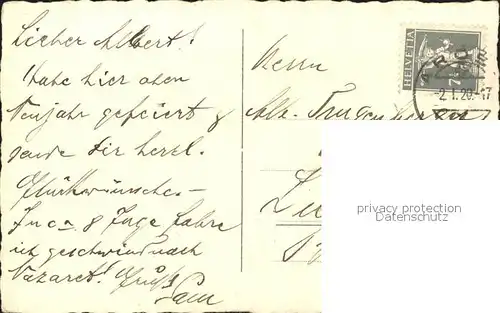 Lieber Albert!
Habe hier oben
Neujahr gefeiert &
sende Dir herzl.
Glückwünsche.-
In ca 8 Tage fahre
ich geschwind nach
Nazaret! Gruss
Herrn
Alb.
HELVETIA
7½
-2.I.20.-17
privacy protection
Datenschutz